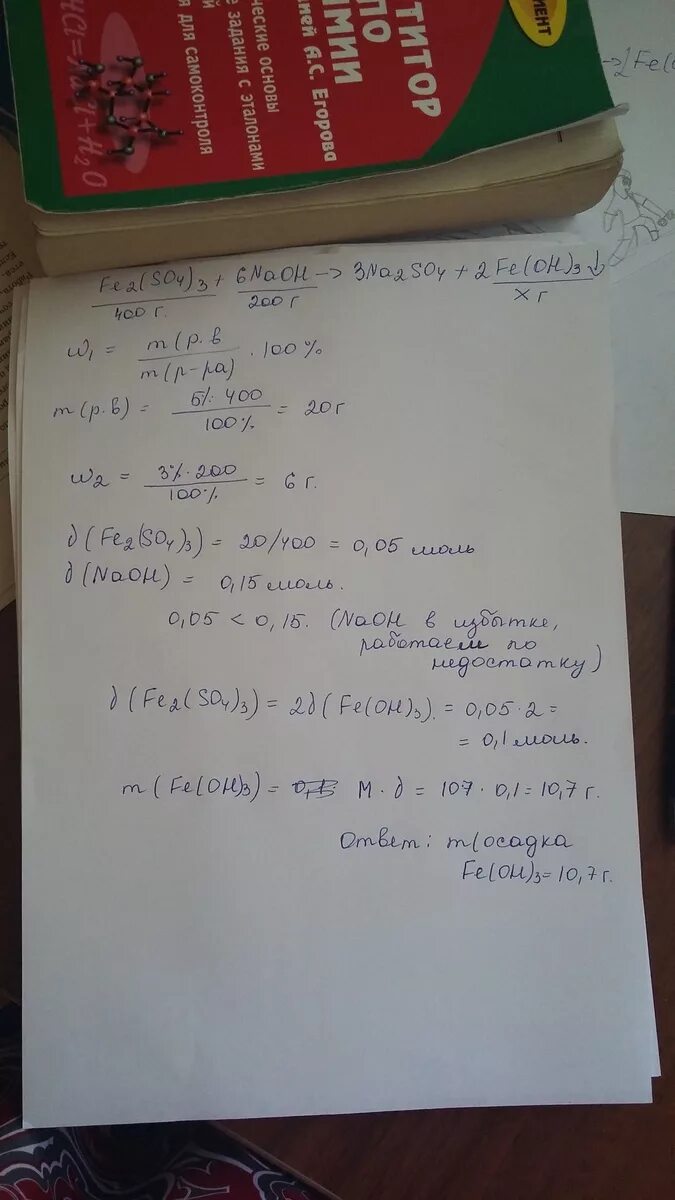 ТИТОР
ПО
ИМИИ
А.С. Егорова
основы
задания с эталонами
для самоконтроля
МЕНТ
+ H₂O
→ 2Fe(
Fe₂(SO₄)₃ + 6NaOH → 3Na₂SO₄ + 2Fe(OH)₃↓
400 г. 200 г x г
w₁ = m(р.в / m(р-ра) · 100%
m(р.в) = 5%·400 / 100% = 20г
w₂ = 3%·200 / 100% = 6 г.
∂(Fe₂(SO₄)₃) = 20/400 = 0,05 моль
∂(NaOH) = 0,15 моль.
0,05 < 0,15. (NaOH в избытке,
работаем по
недостатку)
∂(Fe₂(SO₄)₃) = 2∂(Fe(OH)₃) = 0,05·2 =
= 0,1 моль.
m(Fe(OH)₃) = M·∂ = 107·0,1 = 10,7 г.
Ответ: m(осадка
Fe(OH)₃ = 10,7 г.